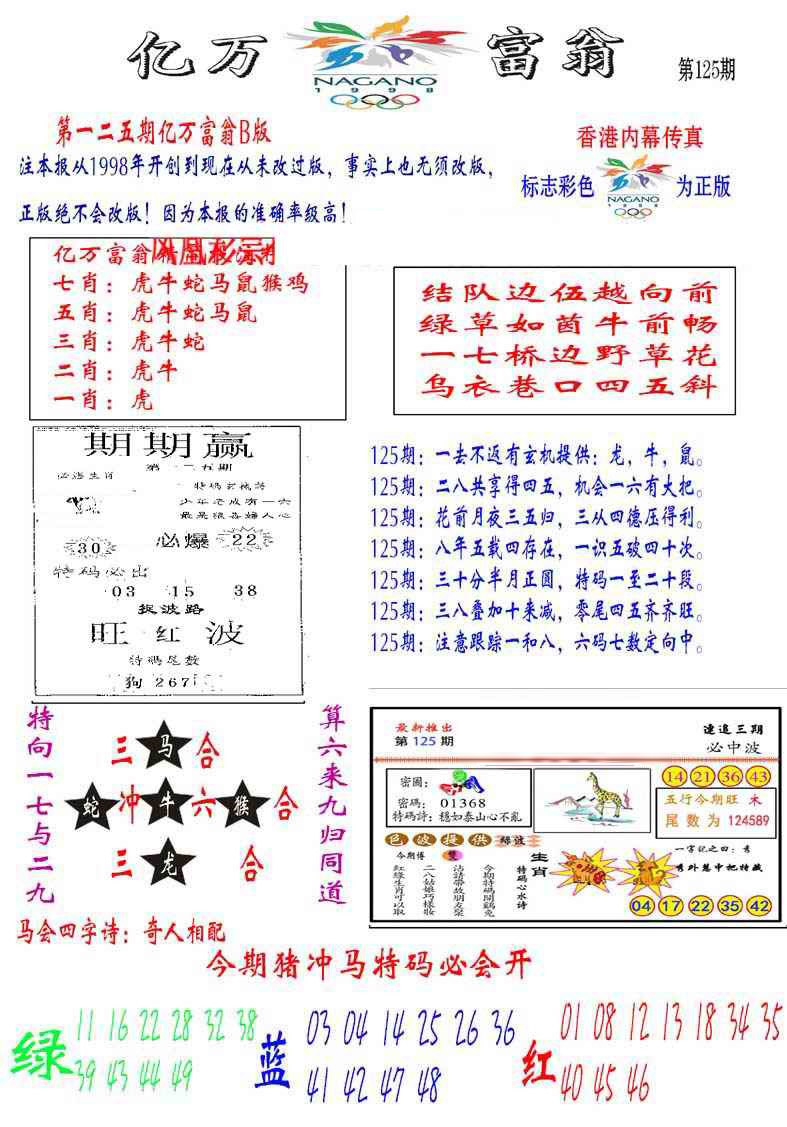 亿万
富翁
NAGANO
1998
第125期
第一二五期亿万富翁B版
注本报从1998年开创到现在从未改过版，事实上也无须改版，
正版绝不会改版！因为本报的准确率级高！
香港内幕传真
标志彩色
NAGANO
1998
为正版
亿万富翁
七肖：虎牛蛇马鼠猴鸡
五肖：虎牛蛇马鼠
三肖：虎牛蛇
二肖：虎牛
一肖：虎
结队边伍越向前
绿草如茵牛前畅
一七桥边野草花
乌衣巷口四五斜
期期赢
第一二五期
少年老成有一六
必爆
30
22
特码必出
03 15 38
捉波路
旺红波
特碼尾数
狗 267
125期：一去不返有玄机提供：龙，牛，鼠。
125期：二八共享得四五，机会一六有大把。
125期：花前月夜三五归，三从四德压得利。
125期：八年五载四存在，一识五破四十次。
125期：三十分半月正圆，特码一至二十段。
125期：三八叠加十来减，零尾四五齐齐旺。
125期：注意跟踪一和八，六码七数定向中。
特向一七与二九
三 马 合
蛇 冲 牛 六 猴 合
三 龙 合
算六来九归同道
马会四字诗：奇人相配
最新推出
第 125 期
連追三期
必中波
密圖：
密碼： 01368
特碼詩：穩如泰山心不亂
14 21 36 43
五行今期旺 木
尾数为 124589
色波提供 綠波
今期博 雙
紅綠生肖可以取
二八姑娘巧樣妝
沾諸帶故朋友聚
今期特碼開鷄兔
特碼心水诗
生肖
一字記之曰：秀
秀外慧中把特藏
04 17 22 35 42
今期猪冲马特码必会开
绿
11 16 22 28 32 38
39 43 44 49
蓝
03 04 14 25 26 36
41 42 47 48
红
01 08 12 13 18 34 35
40 45 46